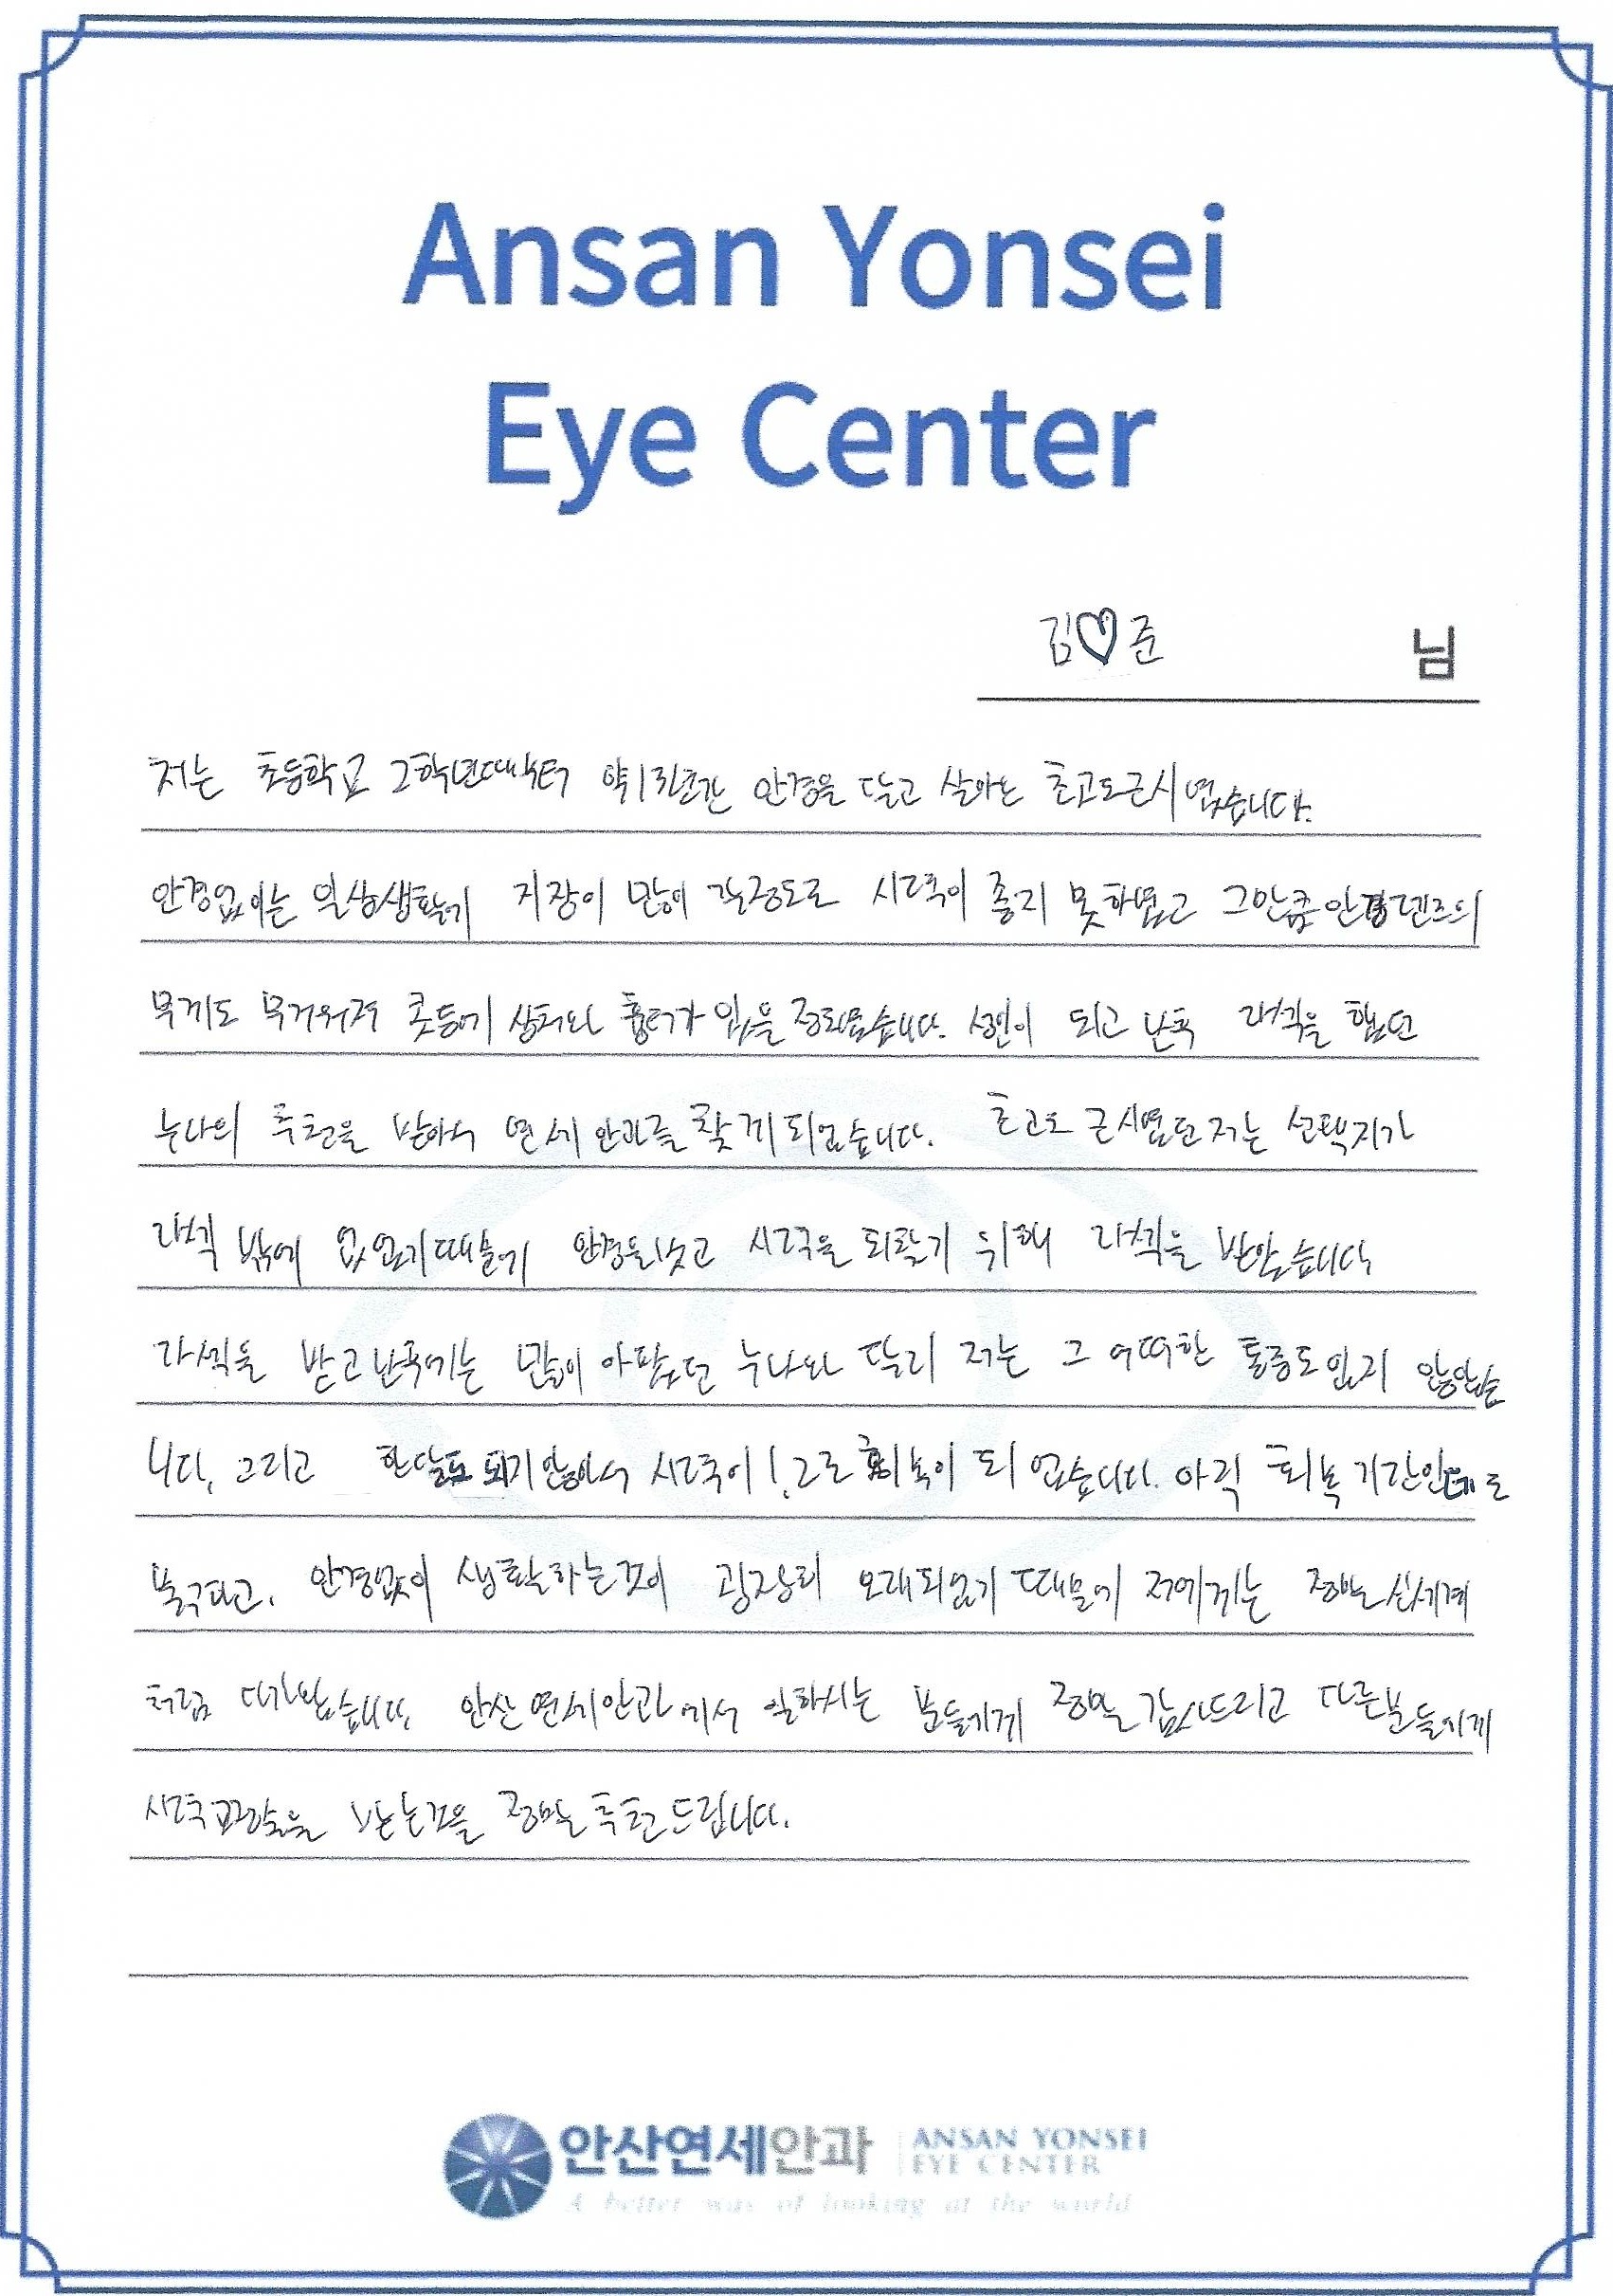 Ansan Yonsei
Eye Center
김♡준 님
저는 초등학교 2학년때부터 약13년간 안경을 달고 살아온 초고도근시였습니다.
안경없이는 일상생활에 지장이 많이 갈정도로 시력이 좋지 못하였고 그만큼 안경렌즈의
무게도 무거워져 콧등에 상처와 흉터가 있을 정도였습니다. 성인이 되고 난후 라섹을 했던
누나의 추천을 받아서 연세안과를 찾게되었습니다. 초고도 근시였던 저는 선택지가
라섹 밖에 없었기때문에 안경을 벗고 시력을 되찾기 위해 라섹을 받았습니다
라섹을 받고난후에는 많이 아팠던 누나와 달리 저는 그 어떠한 통증도 있지 않았습
니다. 그리고 한달도 되기않아서 시력이 1.2로 회복이 되었습니다. 아직 회복기간인데도
불구하고, 안경없이 생활하는것이 굉장히 오래되었기 때문에 저에게는 정말 신세계
처럼 다가왔습니다. 안산연세안과에서 일하시는 분들에게 정말 감사드리고 다른분들에게
시력교정술을 받는것을 정말 추천드립니다.
안산연세안과 ANSAN YONSEI
EYE CENTER
A better way of looking at the world